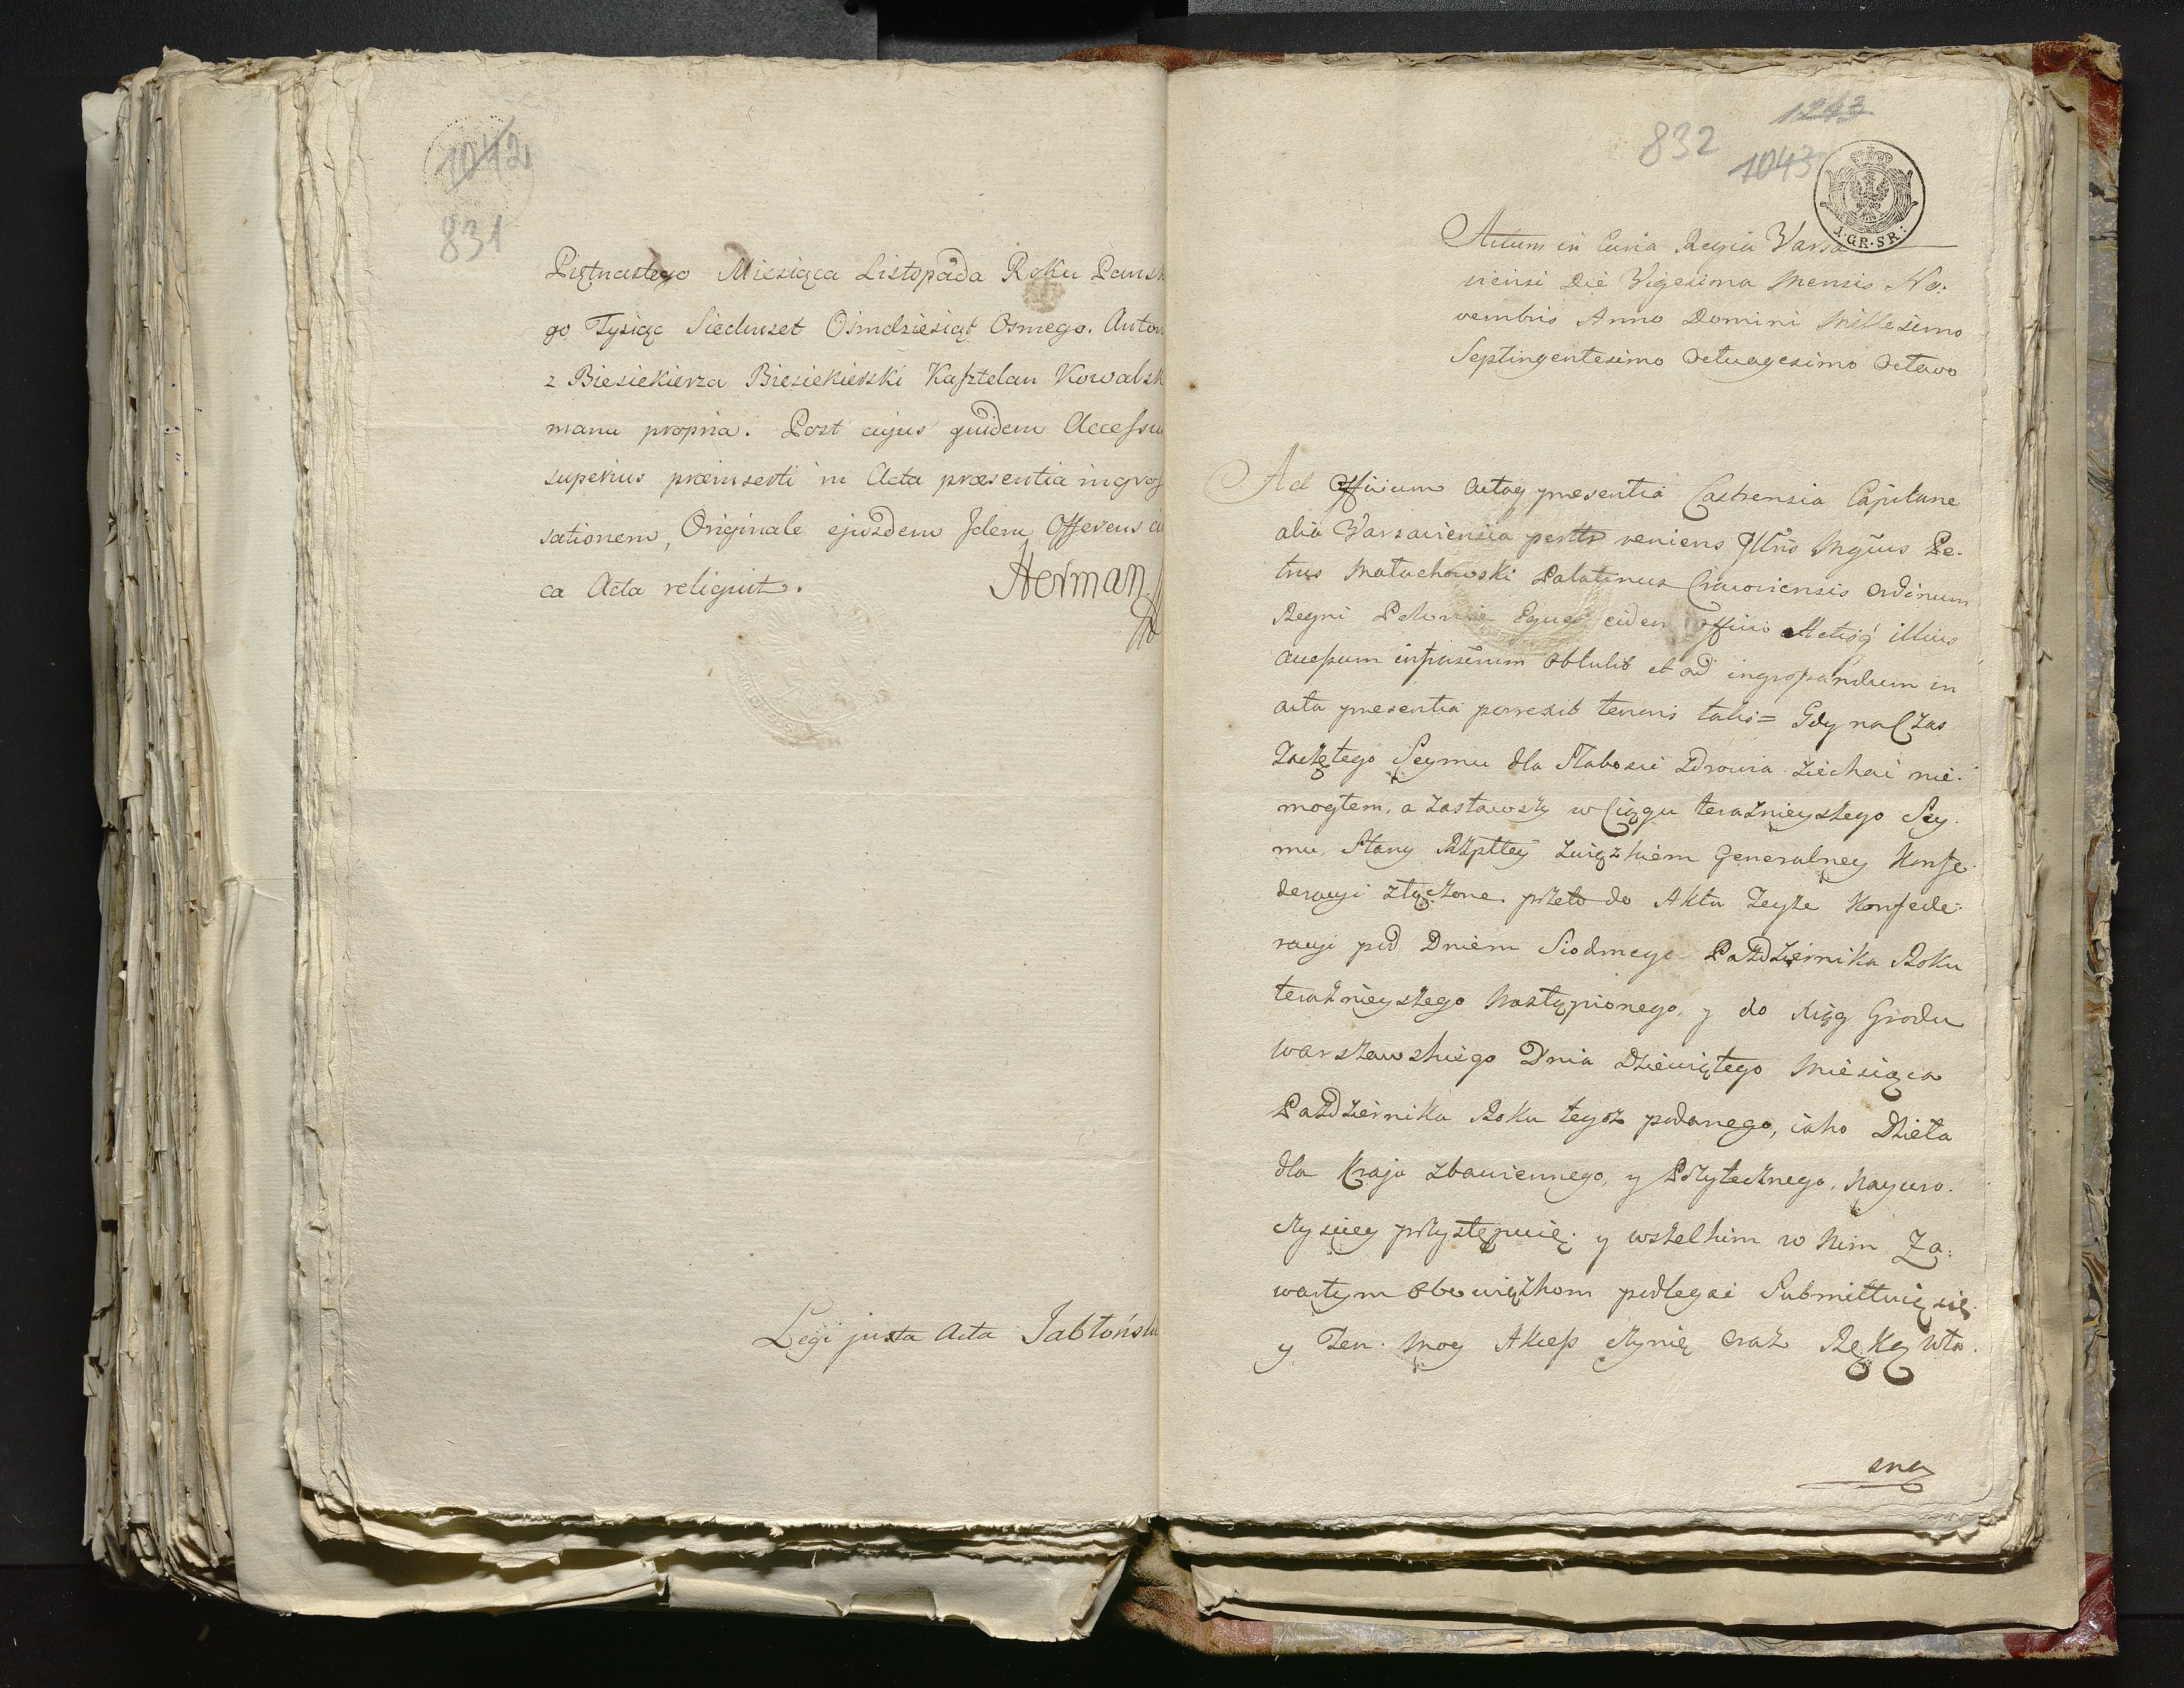 1042
831
Piętnastego Miesiąca Listopada Roku Pansk
go Tysiąc Siedmset Osmdziesiąt Osmego. Anton
z Biesiekierza Biesiekierski Kasztelan Kowalsk
manu propria. Post cujus quidem Accessu
superius præinserti in Acta præsentia ingros
sationem, Originale ejusdem Idem Offerens
ca Acta reliquit.
Herman
Legi juxta Acta Jabłońsk
1243
832
1043
1·GR·SR·
Actum in Curia Regia Varsa
viensi Die Vigesima Mensis No:
vembris Anno Domini Millesimo
Septingentesimo Octuagesimo Octavo
Ad Officium Actaq presentia Castrensia Capitane
alia Varsaviensia psltr veniens Illris Mgcus Pe-
trus Małachowski Palatinus Cracoviensis Ordinum
Regni Polonie Eques eidem Officio Actisq illius
accessum infrascrium obtulit et ad ingrossandum in
acta presentia porrexit tenoris talis= Gdy na Czas
Zaczętego Seymu dla Słabosci zdrowia ziechać nie:
mogłem, a zastawszy w Ciągu teraznieyszego Sey.
mu, Stany Rzpltey związkiem Generalney Konfe-
deracyi złączone. przeto do Aktu Teyże Konfede-
racyi pod Dniem Siodmego Października Roku
teraznieyszego Nastąpionego, y do Xiąg Grodu
Warszawskiego Dnia Dziewiątego Miesiąca
Października Roku tegoż podanego, iako Dzieła
dla Kraju zbawiennego, y Pożytecznego, Nayuro.
czysciey przystępuię; y wszelkim w Nim Za:
wartym obowiązkom podlegać Submittuię się.
y Ten. Moy Akcess czynię oraz Ręką wła.
sną